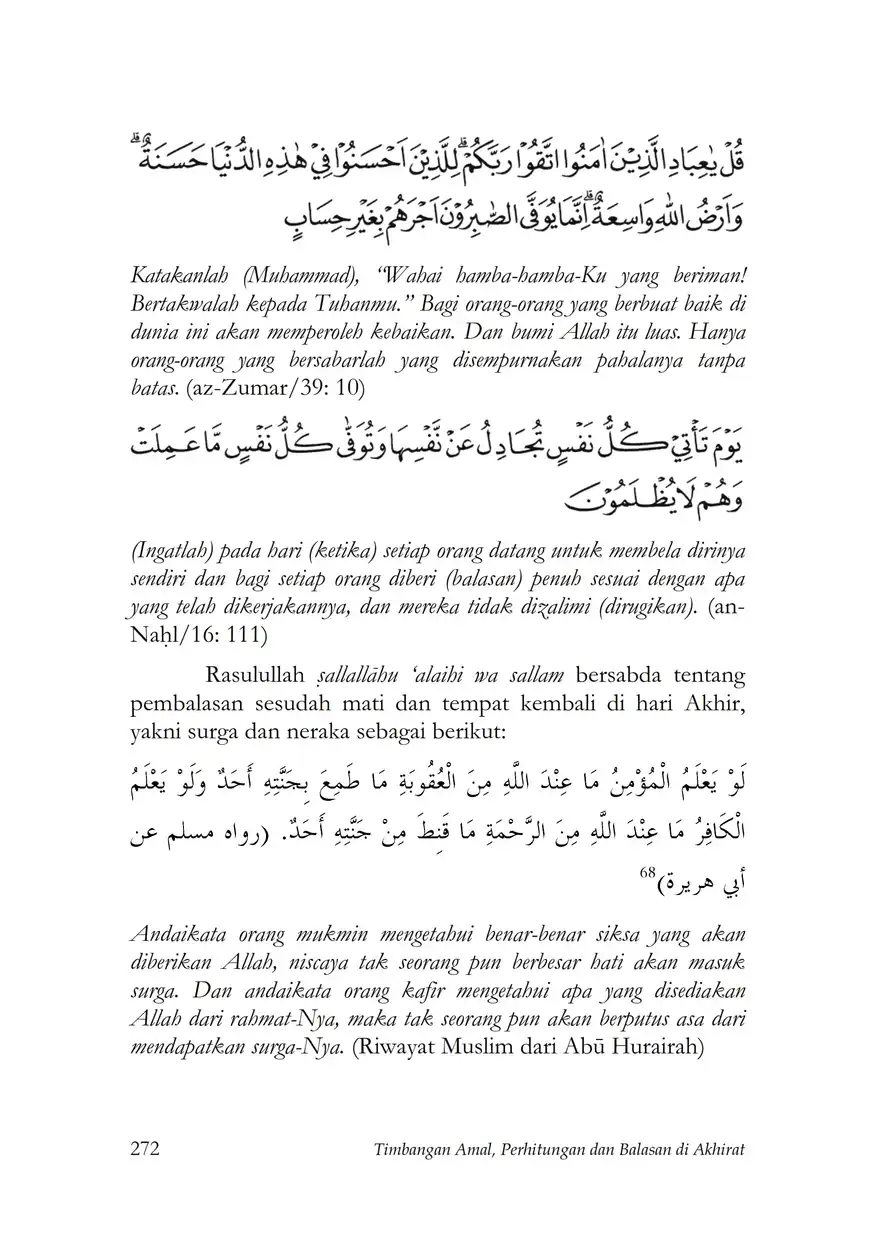 قُلْ يٰعِبَادِ الَّذِيْنَ اٰمَنُوا اتَّقُوْا رَبَّكُمْ ۗلِلَّذِيْنَ اَحْسَنُوْا فِيْ هٰذِهِ الدُّنْيَا حَسَنَةٌ ۗ
وَاَرْضُ اللّٰهِ وَاسِعَةٌ ۗاِنَّمَا يُوَفَّى الصّٰبِرُوْنَ اَجْرَهُمْ بِغَيْرِ حِسَابٍ
Katakanlah (Muhammad), “Wahai hamba-hamba-Ku yang beriman!
Bertakwalah kepada Tuhanmu.” Bagi orang-orang yang berbuat baik di
dunia ini akan memperoleh kebaikan. Dan bumi Allah itu luas. Hanya
orang-orang yang bersabarlah yang disempurnakan pahalanya tanpa
batas. (az-Zumar/39: 10)
يَوْمَ تَأْتِيْ كُلُّ نَفْسٍ تُجَادِلُ عَنْ نَّفْسِهَا وَتُوَفّٰى كُلُّ نَفْسٍ مَّا عَمِلَتْ
وَهُمْ لَا يُظْلَمُوْنَ
(Ingatlah) pada hari (ketika) setiap orang datang untuk membela dirinya
sendiri dan bagi setiap orang diberi (balasan) penuh sesuai dengan apa
yang telah dikerjakannya, dan mereka tidak dizalimi (dirugikan). (an-
Naḥl/16: 111)
Rasulullah ṣallallāhu ‘alaihi wa sallam bersabda tentang
pembalasan sesudah mati dan tempat kembali di hari Akhir,
yakni surga dan neraka sebagai berikut:
لَوْ يَعْلَمُ الْمُؤْمِنُ مَا عِنْدَ اللَّهِ مِنَ الْعُقُوبَةِ مَا طَمِعَ بِجَنَّتِهِ أَحَدٌ وَلَوْ يَعْلَمُ
الْكَافِرُ مَا عِنْدَ اللَّهِ مِنَ الرَّحْمَةِ مَا قَنِطَ مِنْ جَنَّتِهِ أَحَدٌ. (رواه مسلم عن
أبي هريرة)68
Andaikata orang mukmin mengetahui benar-benar siksa yang akan
diberikan Allah, niscaya tak seorang pun berbesar hati akan masuk
surga. Dan andaikata orang kafir mengetahui apa yang disediakan
Allah dari rahmat-Nya, maka tak seorang pun akan berputus asa dari
mendapatkan surga-Nya. (Riwayat Muslim dari Abū Hurairah)
272 Timbangan Amal, Perhitungan dan Balasan di Akhirat